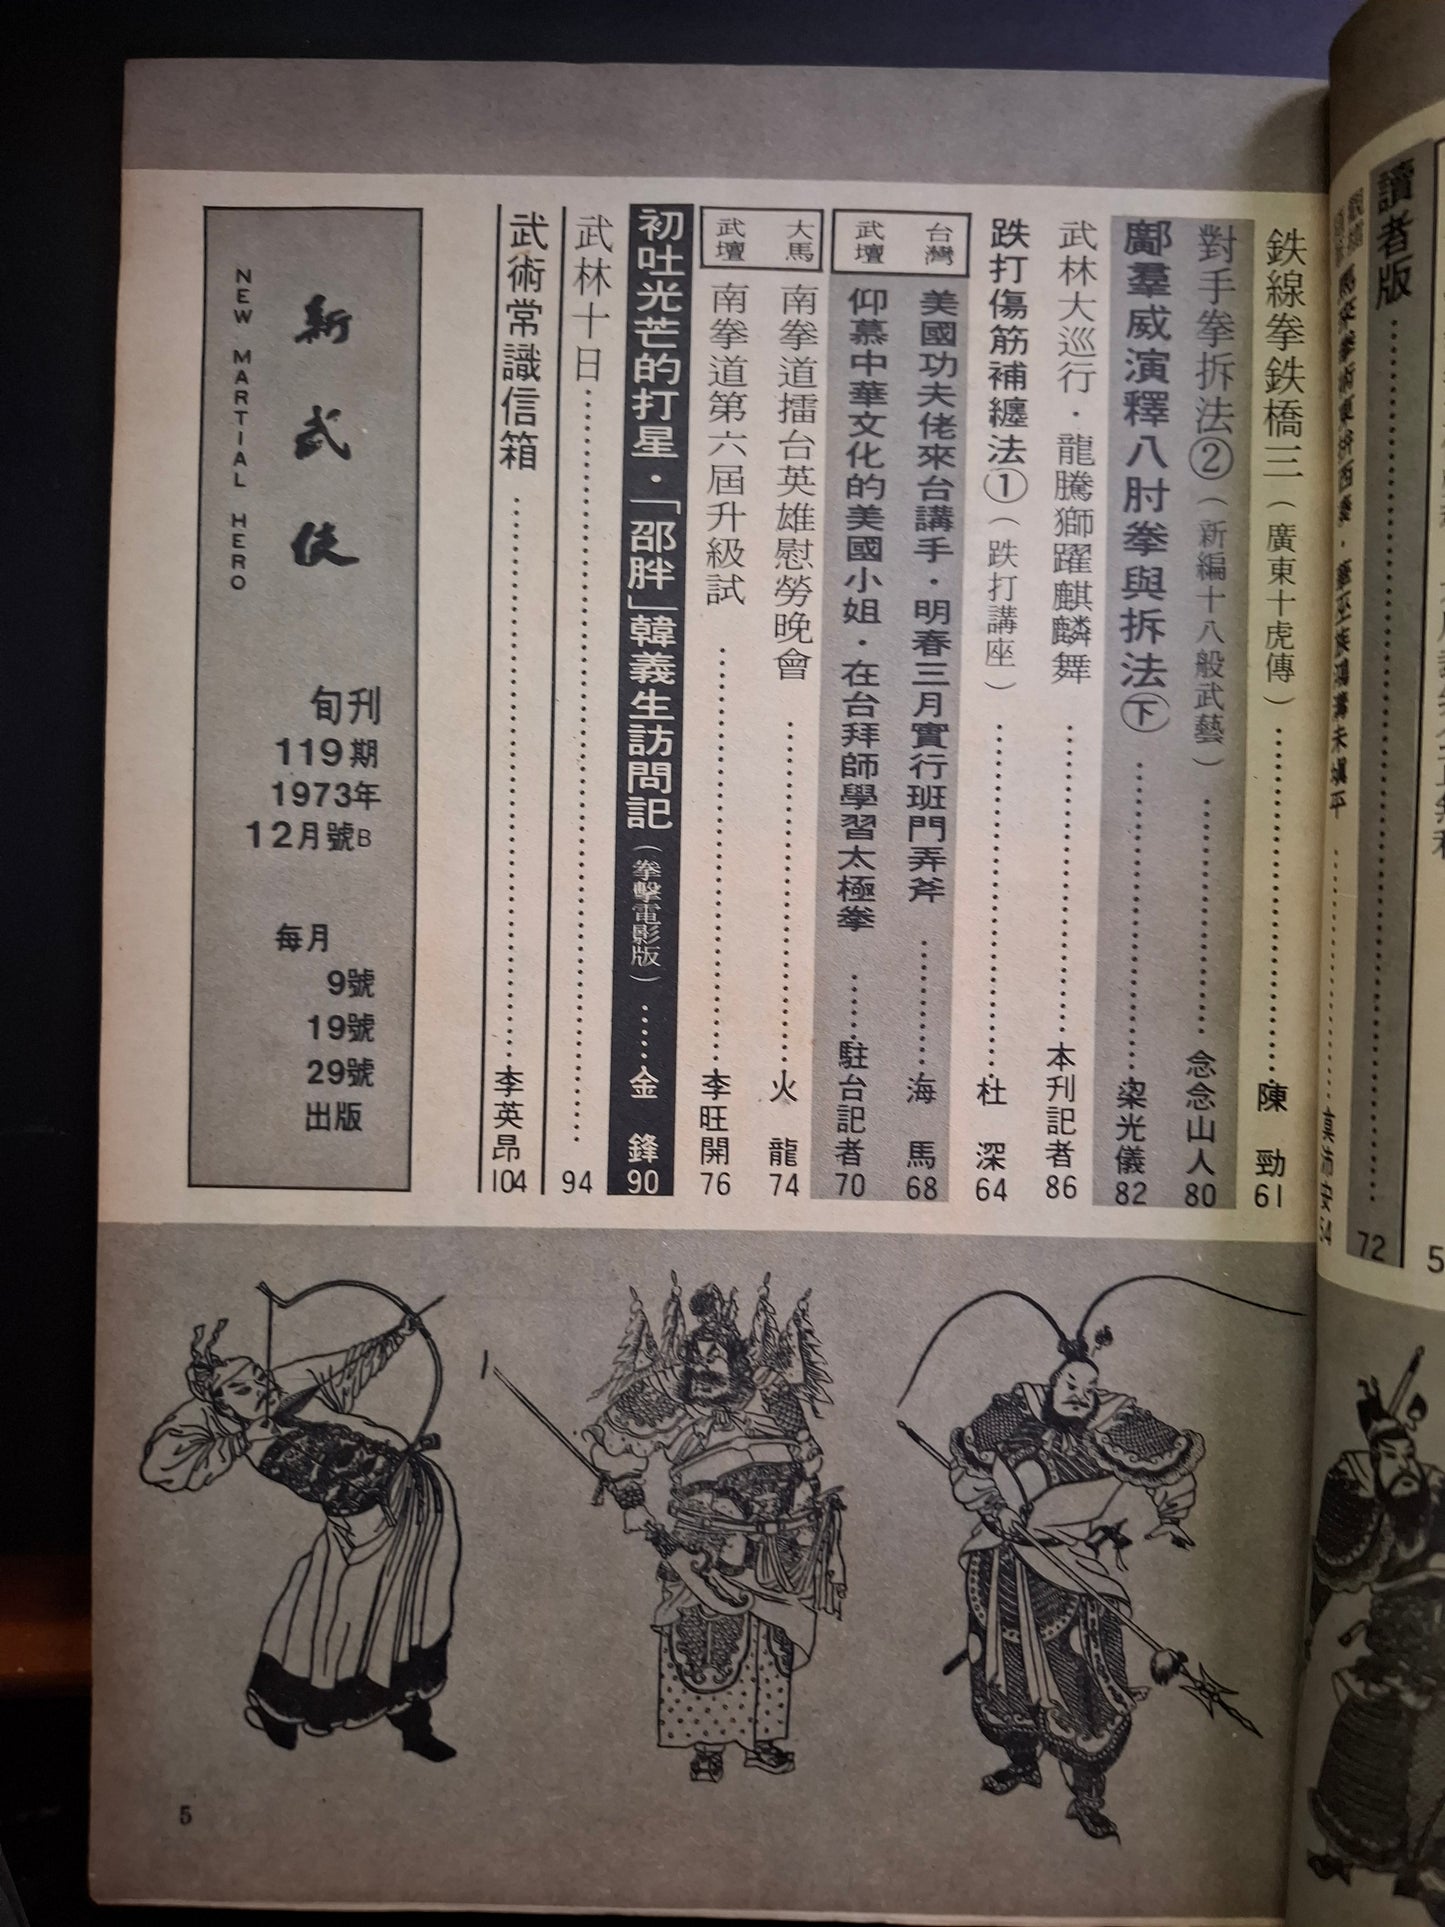 讀者版 72
鉄線拳鉄橋三（廣東十虎傳） 陳勁 61
對手拳拆法②（新編十八般武藝） 念念山人 80
鄺羣威演釋八肘拳與拆法㊦ 梁光儀 82
武林大巡行·龍騰獅躍麒麟舞 本刊記者 86
跌打傷筋補纏法①（跌打講座） 杜深 64
台灣武壇
美國功夫佬來台講手·明春三月實行班門弄斧 海馬 68
仰慕中華文化的美國小姐·在台拜師學習太極拳 駐台記者 70
大馬武壇
南拳道擂台英雄慰勞晚會 火龍 74
南拳道第六屆升級試 李旺開 76
初吐光芒的打星·「邵胖」韓義生訪問記（拳擊電影版） 金鋒 90
武林十日 94
武術常識信箱 李英昂 104
新武俠
NEW MARTIAL HERO
旬刊
119期
1973年
12月號B
每月
9號
19號
29號
出版
5